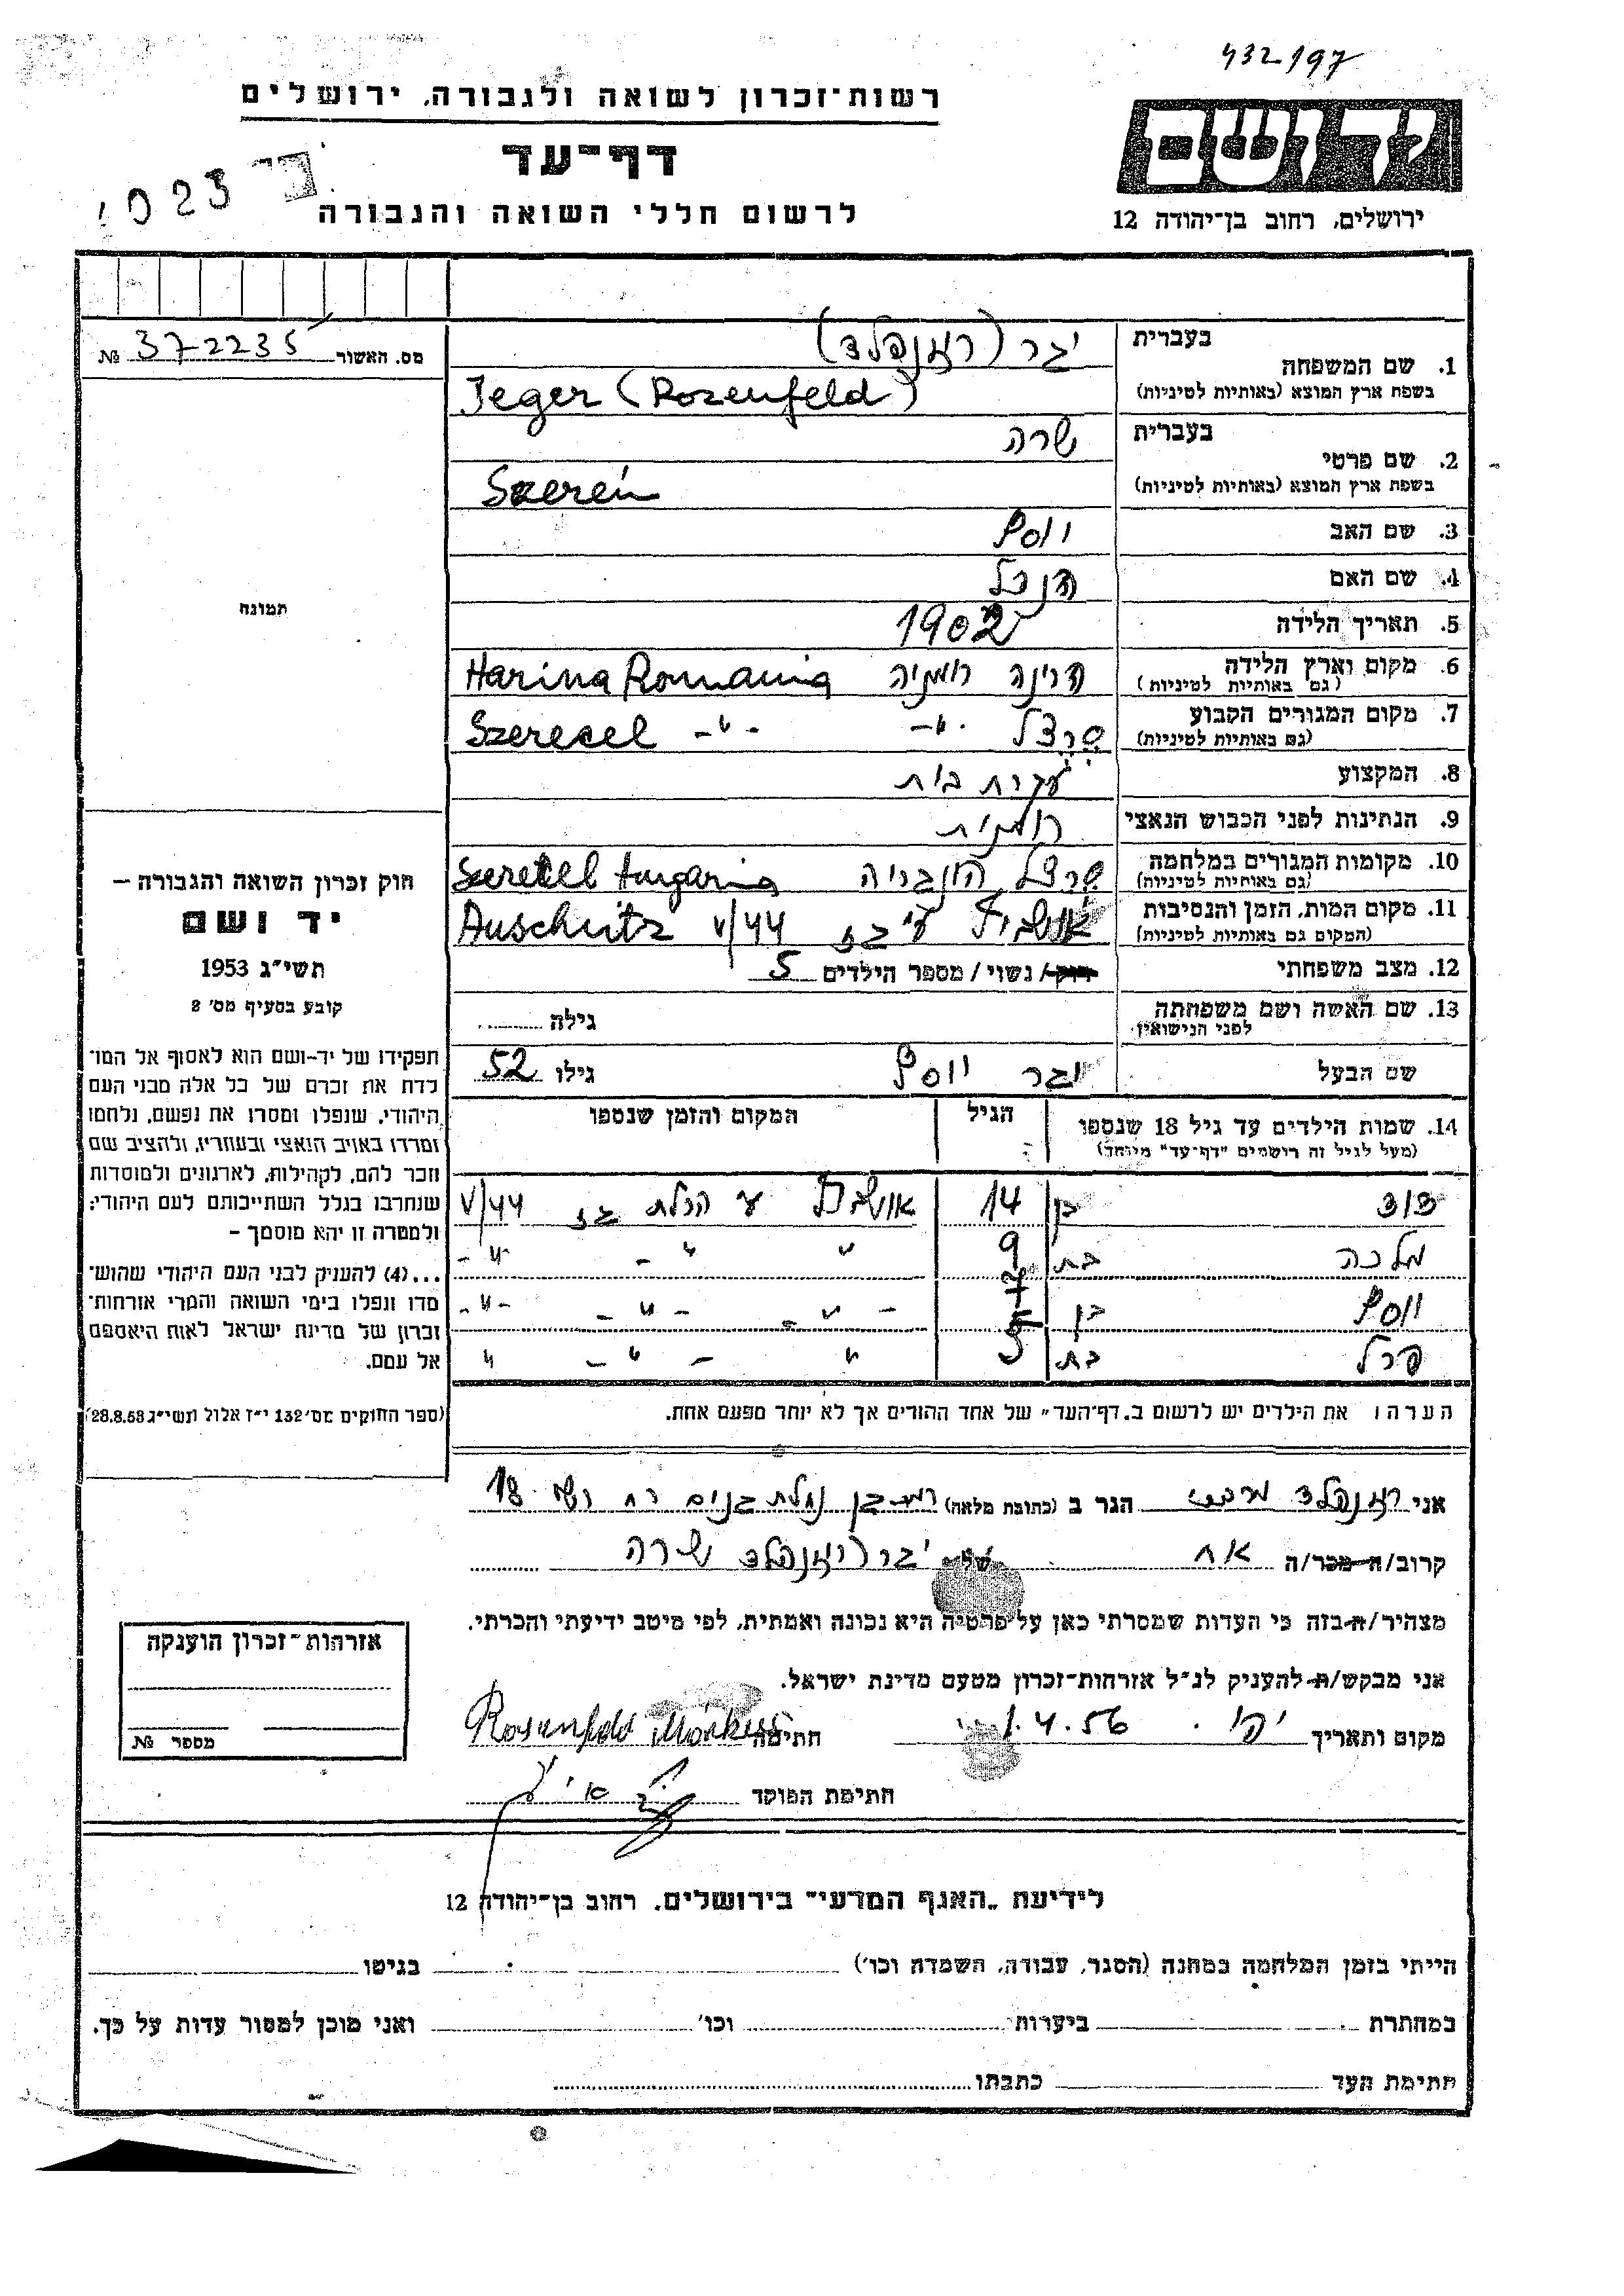 432197
רשות־זכרון לשואה ולגבורה, ירושלים
יד ושם
דף־עד
1023
לרשום חללי השואה והגבורה
ירושלים, רחוב בן־יהודה 12
מס. האשור 372235 №
1. שם המשפחה
בעברית יגר (רוזנפלד)
בשפת ארץ המוצא (באותיות לטיניות) Jeger (Rozenfeld)
2. שם פרטי
בעברית שרה
בשפת ארץ המוצא (באותיות לטיניות) Szerén
3. שם האב יוסף
4. שם האם הנצל
5. תאריך הלידה 1902
6. מקום וארץ הלידה הרינה רומניה Harina Romania
(גם באותיות לטיניות)
7. מקום המגורים הקבוע סרצל -"- Szerecel -"-
(גם באותיות לטיניות)
8. המקצוע עקרת בית
9. הנתינות לפני הכבוש הנאצי רומנית
10. מקומות המגורים במלחמה סרצל הונגריה Szeretcel Hungaria
(גם באותיות לטיניות)
11. מקום המות, הזמן והנסיבות אושביץ ע"י גז V/44 Auschwitz
(המקום גם באותיות לטיניות)
12. מצב משפחתי רוק/ נשוי / מספר הילדים 5
13. שם האשה ושם משפחתה לפני הנישואין גילה
שם הבעל יגר יוסף גילו 52
14. שמות הילדים עד גיל 18 שנספו הגיל המקום והזמן שנספו
(מעל לגיל זה רושמים "דף־עד" מיוחד)
דוד בן 14 אושביץ V/44
מלכה בת 9 " " "
יוסף בן 7 " " "
פרל בת 5 " " "
הערה: את הילדים יש לרשום ב„דף־העד" של אחד ההורים אך לא יותר מפעם אחת.
תמונה
חוק זכרון השואה והגבורה –
יד ושם
תשי"ג 1953
קובע בסעיף מס' 2
תפקידו של יד-ושם הוא לאסוף אל המו־
לדת את זכרם של כל אלה מבני העם
היהודי, שנפלו ומסרו את נפשם, נלחמו
ומרדו באויב הנאצי ובעוזריו, ולהציב שם
וזכר להם, לקהילות, לארגונים ולמוסדות
שנחרבו בגלל השתייכותם לעם היהודי;
ולמטרה זו יהא מוסמך –
...(4) להעניק לבני העם היהודי שהוש־
מדו ונפלו בימי השואה והמרי אזרחות־
זכרון של מדינת ישראל לאות היאספם
אל עמם.
(ספר החוקים מס' 132 י"ז אלול תשי"ג 28.8.53)
אני רוזנפלד מרכוס הגר ב (כתובת מלאה) רמת גן נחלת גנים רח רש"י 18
קרוב/ה מכר/ה אח של יגר (רוזנפלד) שרה
מצהיר/ה בזה כי העדות שמסרתי כאן על פרטיה היא נכונה ואמתית, לפי מיטב ידיעתי והכרתי.
אני מבקש/ת להעניק לנ"ל אזרחות־זכרון מטעם מדינת ישראל.
מקום ותאריך 1.4.56 חתימה Rosenfeld Márkus
חתימת הפוקד
אזרחות־זכרון הוענקה
מספר №
לידיעת „האגף המדעי" בירושלים, רחוב בן־יהודה 12
הייתי בזמן המלחמה במחנה (הסגר, עבודה, השמדה וכו') בגיטו
במחתרת ביערות וכו' ואני מוכן למסור עדות על כך.
חתימת העד כתבתו